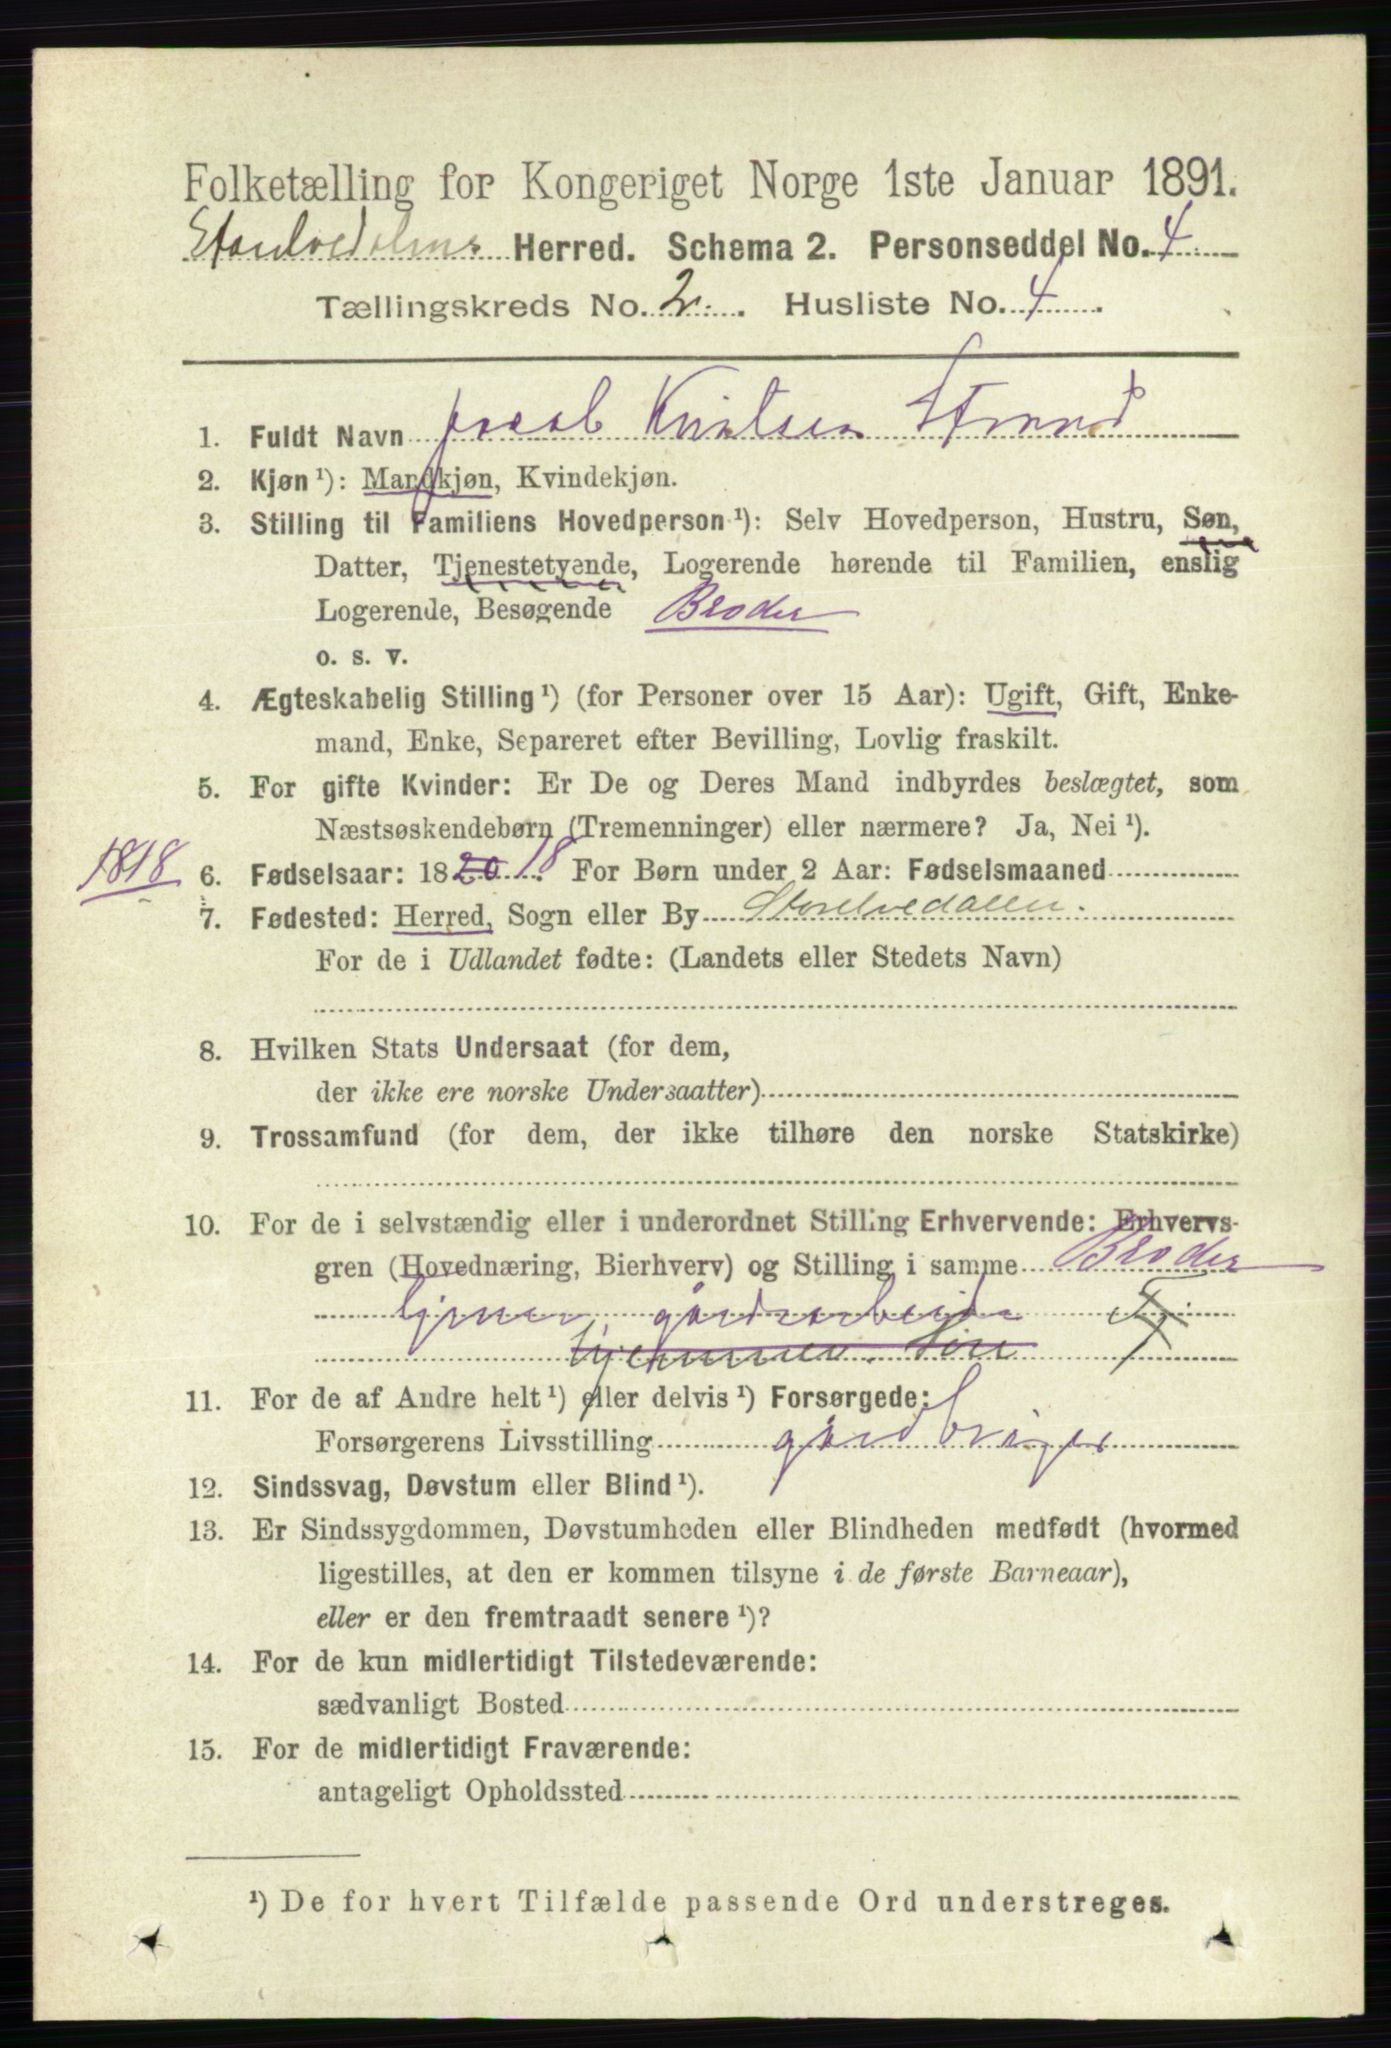 Folketælling for Kongeriget Norge 1ste Januar 1891.
Storelvedalens Herred. Schema 2. Personseddel No. 4
Tællingskreds No. 2. Husliste No. 4.
1. Fuldt Navn Jacob Knutsen Strand
2. Kjøn ¹): Mandkjøn, Kvindekjøn.
3. Stilling til Familiens Hovedperson ¹): Selv Hovedperson, Hustru, Søn,
Datter, Tjenestetyende, Logerende hørende til Familien, enslig
Logerende, Besøgende Broder
o. s. v.
4. Ægteskabelig Stilling ¹) (for Personer over 15 Aar): Ugift, Gift, Enke-
mand, Enke, Separeret efter Bevilling, Lovlig fraskilt.
5. For gifte Kvinder: Er De og Deres Mand indbyrdes beslægtet, som
Næstsøskendebørn (Tremenninger) eller nærmere? Ja, Nei ¹).
1818 6. Fødselsaar: 1820 18. For Børn under 2 Aar: Fødselsmaaned
7. Fødested: Herred, Sogn eller By Storelvedalen.
For de i Udlandet fødte: (Landets eller Stedets Navn)
8. Hvilken Stats Undersaat (for dem,
der ikke ere norske Undersaatter)
9. Trossamfund (for dem, der ikke tilhøre den norske Statskirke)
10. For de i selvstændig eller i underordnet Stilling Erhvervende: Erhvervs-
gren (Hovednæring, Bierhverv) og Stilling i samme Broder
gårdsarbeide
11. For de af Andre helt ¹) eller delvis ¹) Forsørgede:
Forsørgerens Livsstilling gårdbruger
12. Sindssvag, Døvstum eller Blind ¹).
13. Er Sindssygdommen, Døvstumheden eller Blindheden medfødt (hvormed
ligestilles, at den er kommen tilsyne i de første Barneaar),
eller er den fremtraadt senere ¹)?
14. For de kun midlertidigt Tilstedeværende:
sædvanligt Bosted
15. For de midlertidigt Fraværende:
antageligt Opholdssted
¹) De for hvert Tilfælde passende Ord understreges.